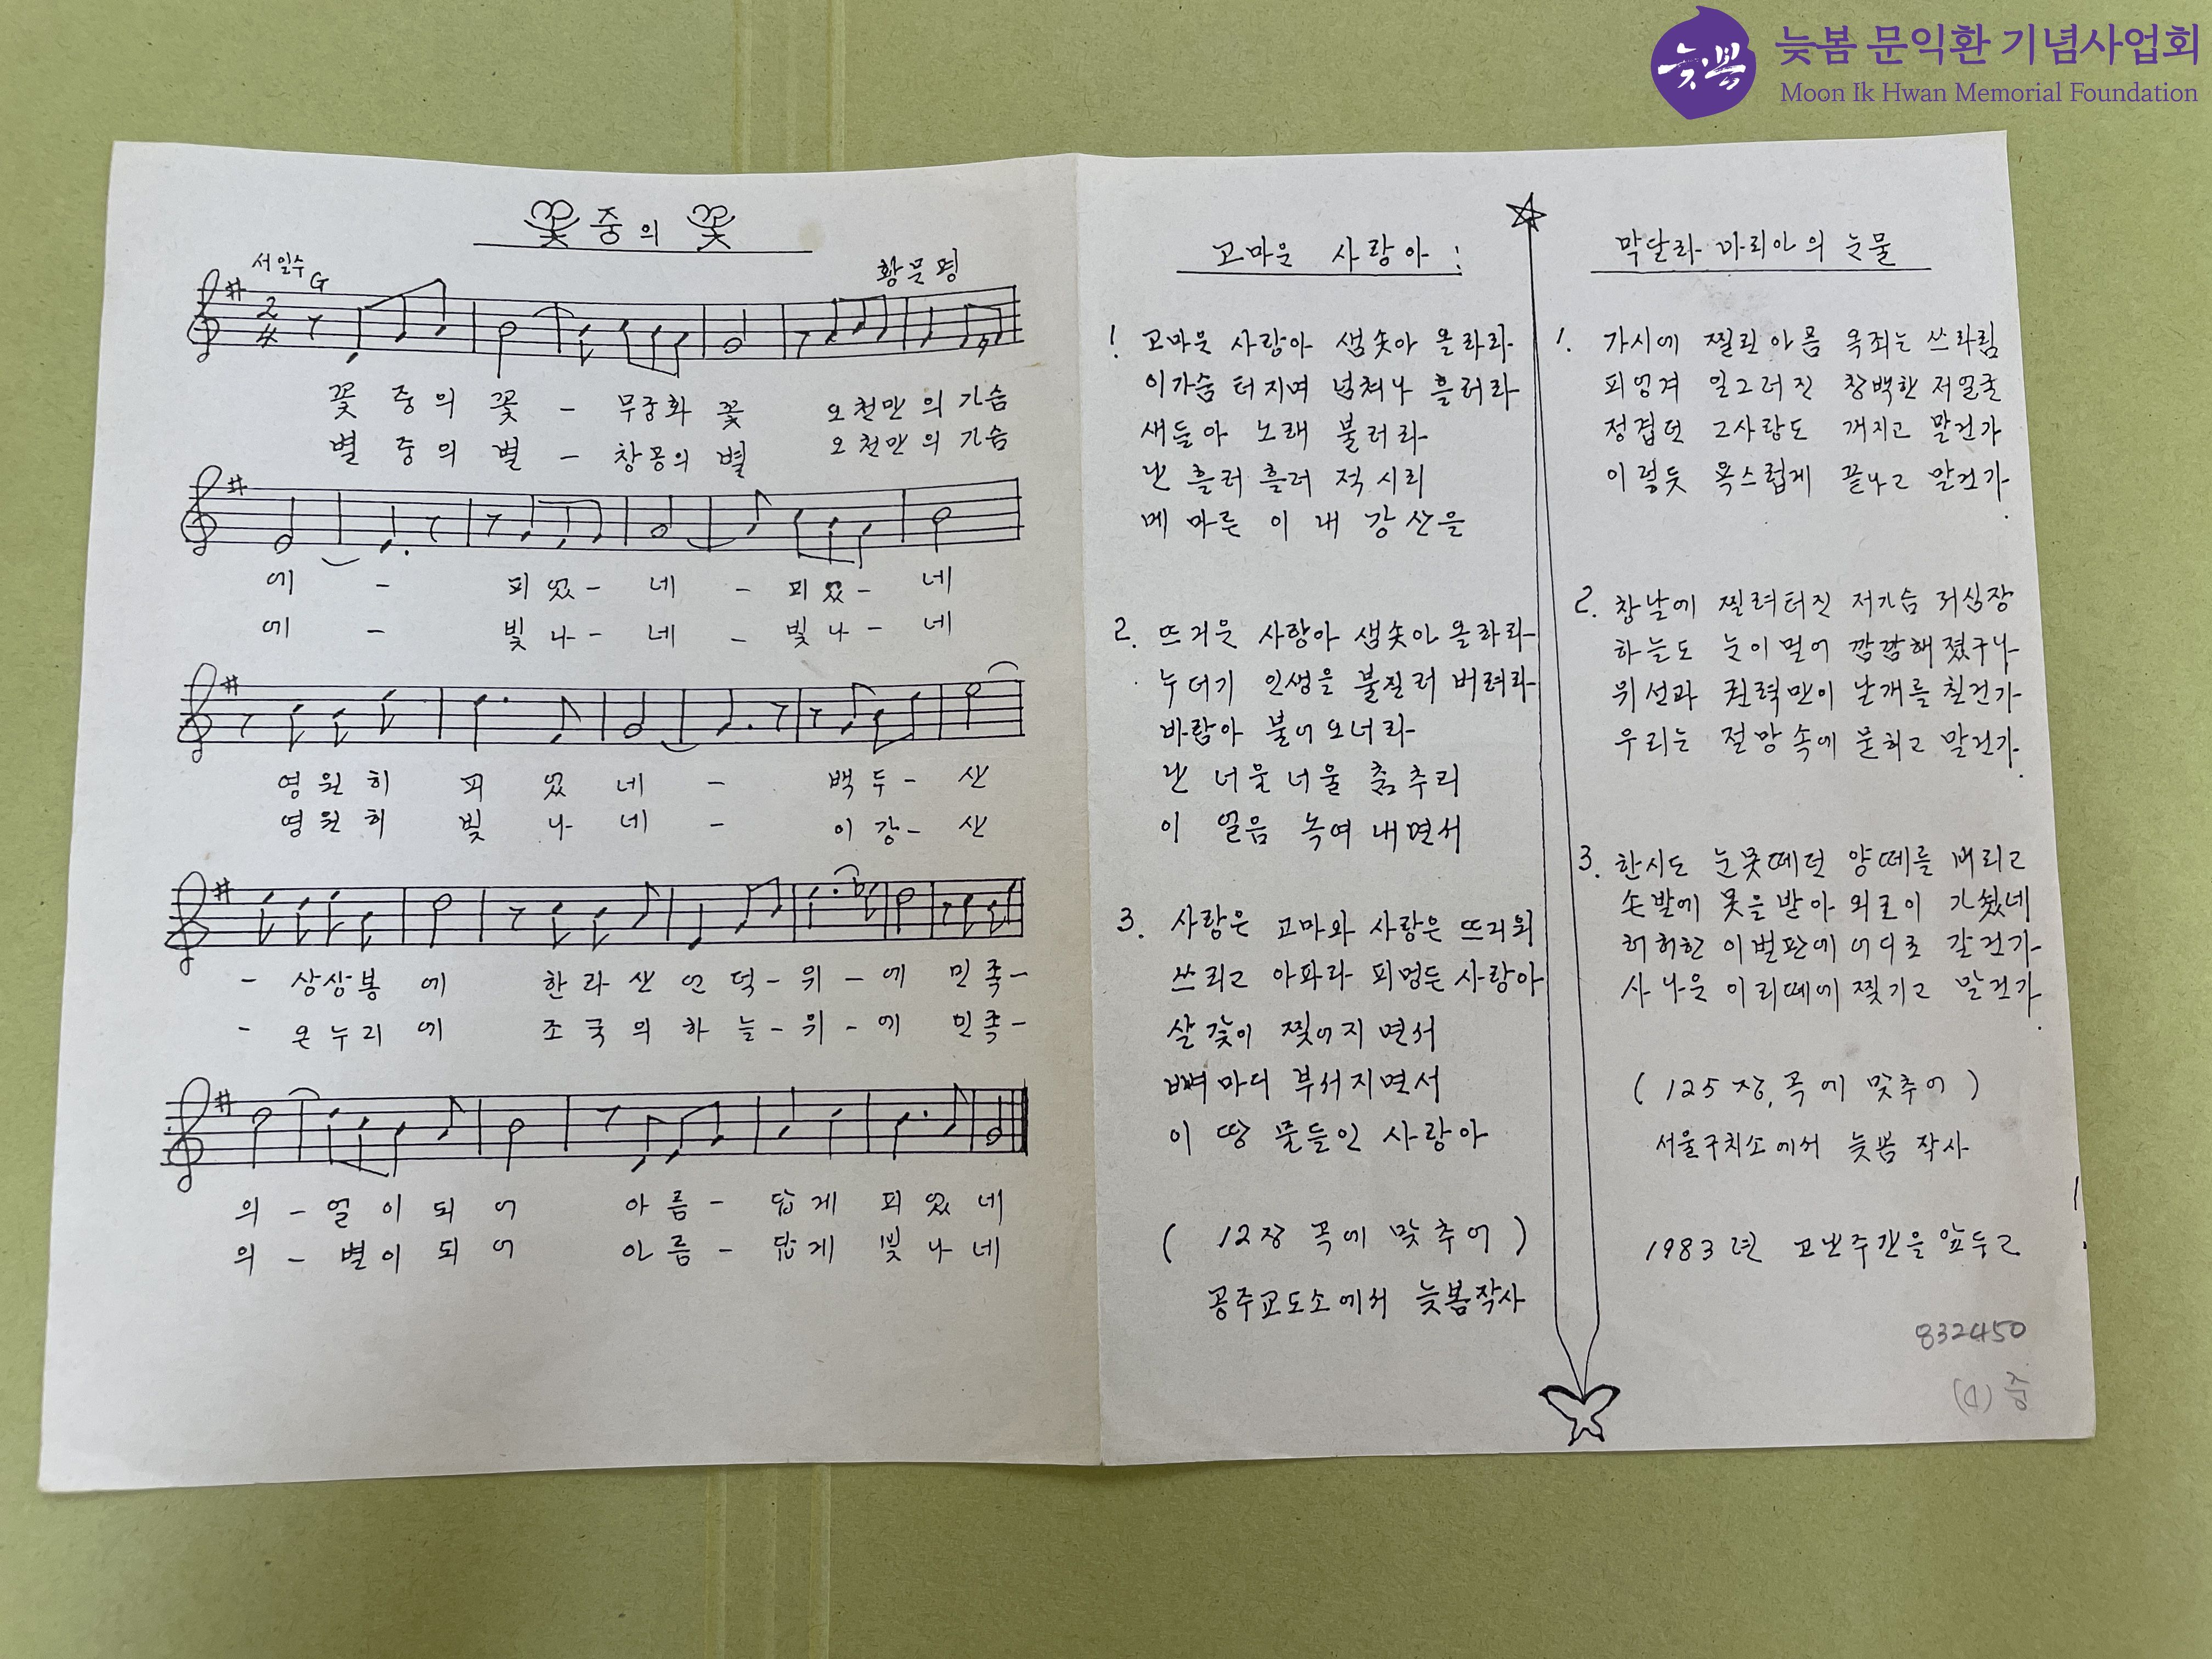 늦봄 문익환 기념사업회
Moon Ik Hwan Memorial Foundation
꽃 중의 꽃
서일수
황문평
G
2
4
꽃 중의 꽃 - 무궁화 꽃 오천만의 가슴
별 중의 별 - 창공의 별 오천만의 가슴
에 - 피었- 네 - 피었- 네
에 - 빛나- 네 - 빛나- 네
영원히 피었네 - 백두- 산
영원히 빛나네 - 이강- 산
- 상상봉에 한라산언덕-위-에 민족-
- 온누리에 조국의하늘-위-에 민족-
의 - 얼이되어 아름- 답게 피었네
의 - 별이되어 아름- 답게 빛나네
고마운 사랑아!
1 고마운 사랑아 샘솟아 올라라
이가슴 터지며 넘쳐나 흘러라
새들아 노래 불러라
난 흘러 흘러 적시리
메마른 이 내 강산을
2. 뜨거운 사랑아 샘솟아 올라라
누더기 인생을 불질러 버려라
바람아 불어오너라
난 너울너울 춤추리
이 얼음 녹여내면서
3. 사랑은 고마와 사랑은 뜨거워
쓰리고 아파라 피멍든 사랑아
살갗이 찢어지면서
뼈마디 부서지면서
이 땅 물들인 사랑아
( 12장 곡에 맞추어 )
공주교도소에서 늦봄작사
막달라 마리아의 눈물
1. 가시에 찔린아픔 옥죄는 쓰라림
피엉겨 일그러진 창백한 저얼굴
정겹던 그사랑도 꺼지고 말건가
이렇듯 욕스럽게 끝나고 말건가.
2. 창날에 찔려터진 저가슴 저심장
하늘도 눈이멀어 깜깜해졌구나
위선과 권력만이 날개를 칠건가
우리는 절망속에 묻히고 말건가.
3. 한시도 눈못떼던 양떼를 버리고
손발에 못을받아 외로이 가셨네
허허한 이벌판에 어디로 갈건가
사나운 이리떼에 찢기고 말건가.
( 125장 곡에 맞추어 )
서울구치소에서 늦봄 작사
1983년 고난주간을 앞두고
832450
(4) 중